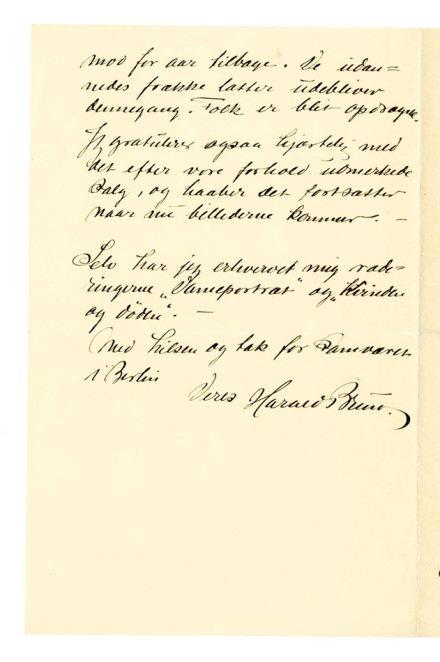 mod for aar tilbage. De udan=
nedes frække latter udebliver
dennegang. Folk er blit opdragne.
Jeg gratulerer ogsaa hjærtelig med
det efter vore forhold udmerkede
salg, og haaber det fortsætter
naar nu billederne kommer. –
Selv har jeg erhvervet mig rade=
ringerne „Dameportræt“ og „Kvinden
og døden“. –
Med hilsen og tak for samværet
i Berlin
Deres Harald Bruun.